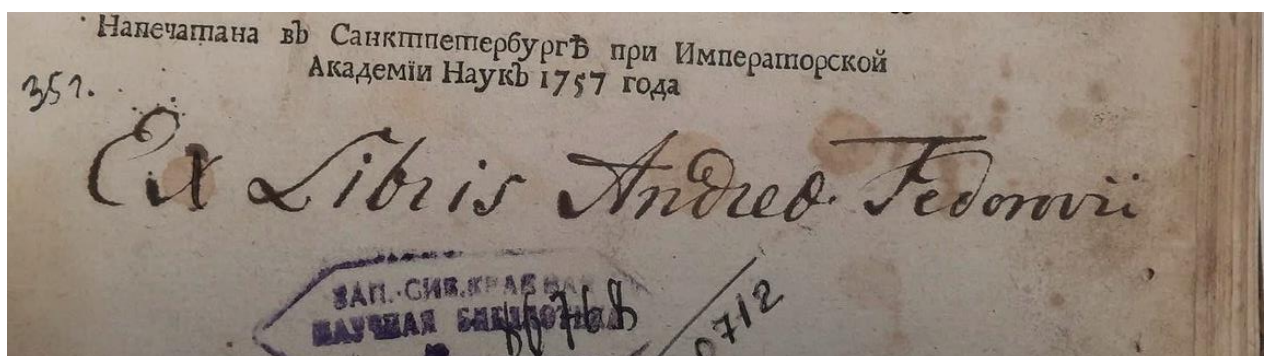 Напечатана въ Санктпетербургѣ при Императорской
Академїи Наукъ 1757 года
351.
Ex Libris Andreo. Fedorovii
ЗАП.-СИБ.КРАЕВАЯ
НАУЧНАЯ БИБЛИОТЕКА
0712